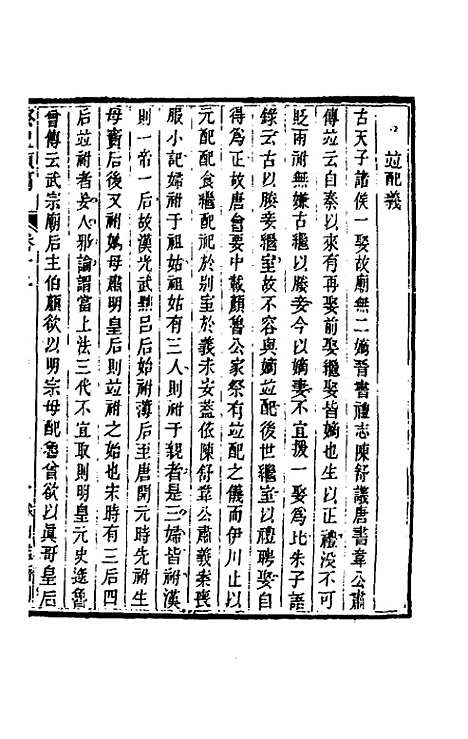 竝配義
古天子諸侯一娶故廟無二嫡晉書禮志陳舒議唐書韋公肅
傳竝云自秦以來有再娶前娶繼娶皆嫡也生以正禮沒不可
貶兩祔無嫌古繼以媵妾今以嫡妻不宜援一娶為比朱子語
錄云古以媵妾繼室故不容與嫡竝配後世繼室以禮聘娶自
得為正故唐會要中載顏魯公家祭有竝配之儀而伊川止以
元配配食繼配祀於別室於義未安葢依陳舒韋公肅義案喪
服小記婦祔于祖姑祖姑有三人則祔于親者是三婦皆祔漢
則一帝一后故漢光武黜呂后始祔薄后至唐開元時先祔生
母竇后後又祔嫡母肅明皇后則竝祔之始也宋時有三后四
后竝祔者妄人邪論謂當上法三代不宜取則明皇元史逯魯
曾傳云武宗廟后主伯顏欲以明宗母配魯曾欲以眞哥皇后